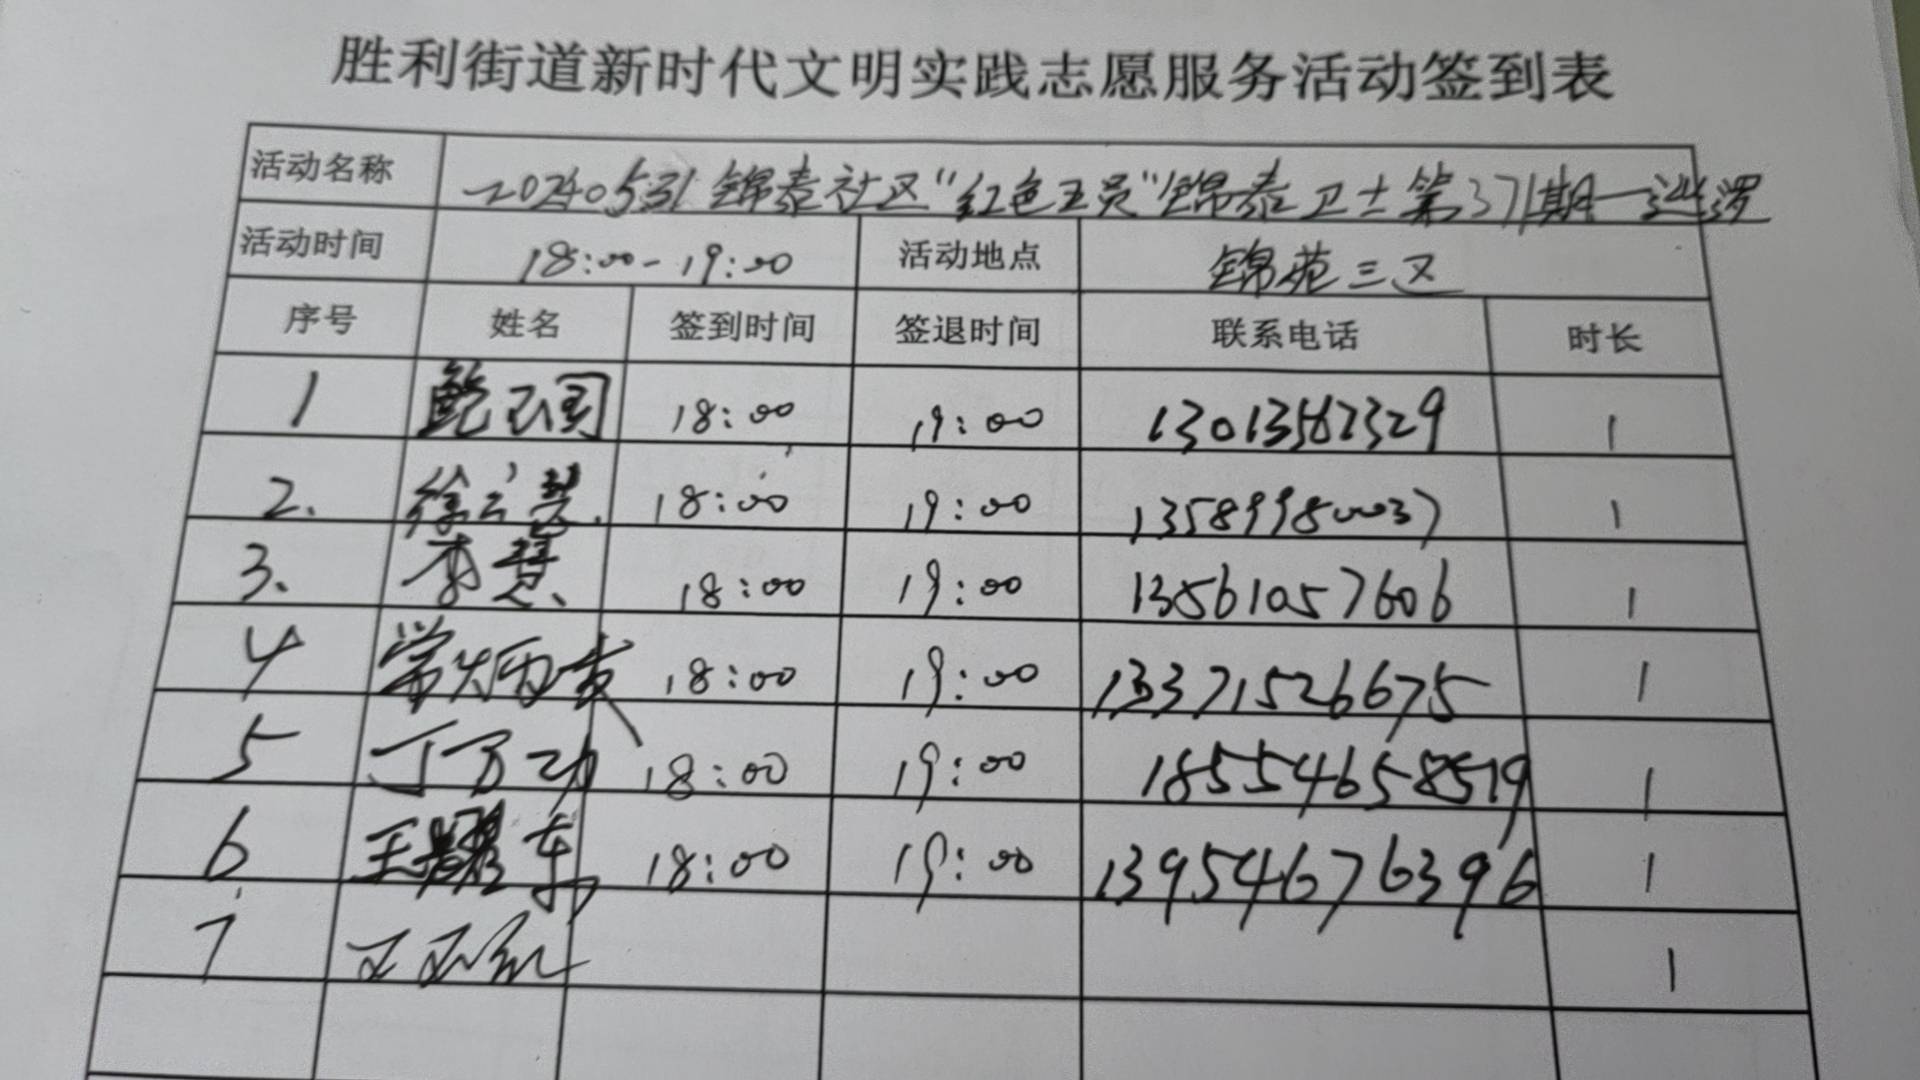 胜利街道新时代文明实践志愿服务活动签到表
活动名称 20240531锦泰社区“红色王员”锦泰卫士第371期—巡逻
活动时间 18:00-19:00 活动地点 锦苑三区
序号 姓名 签到时间 签退时间 联系电话 时长
1 18:00 19:00 13013567329 1
2. 徐 18:00 19:00 13589980037 1
3. 李慧 18:00 19:00 13561057606 1
4 常炳友 18:00 19:00 13371526675 1
5 丁万功 18:00 19:00 18554658519 1
6 王 东 18:00 19:00 13954676396 1
7 1